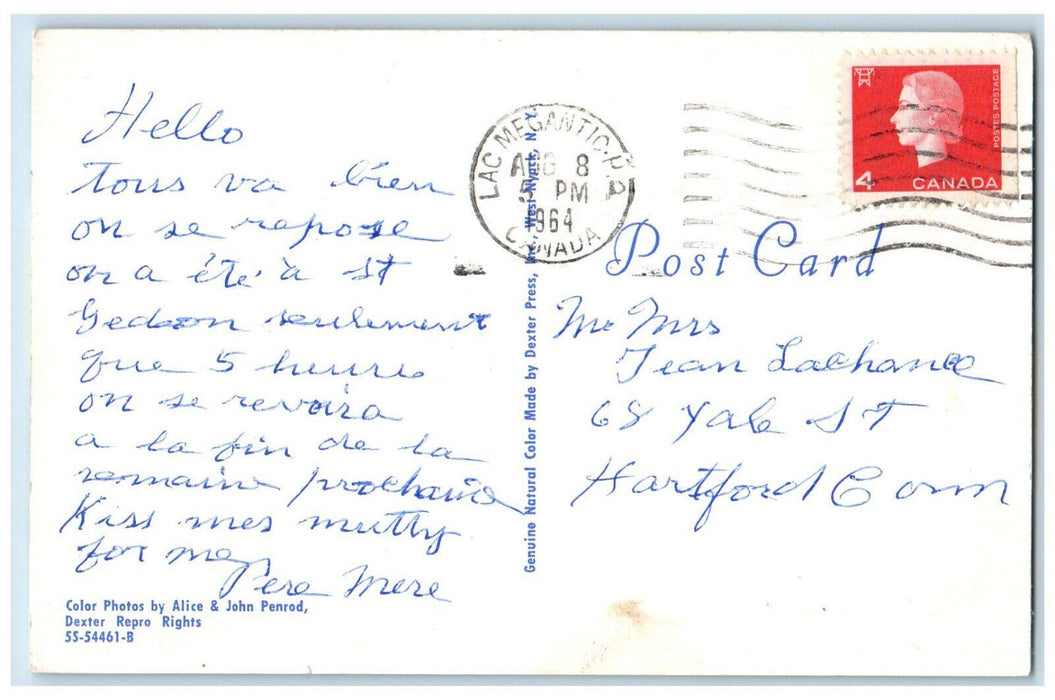 Hello
tous va bien
on se rapose
on a été à st
Gedeon seulement
que 5 heures
on se revoira
a la fin de la
semaine prochaine
Kiss mes mutty
for me
Pere Mere
Color Photos by Alice & John Penrod,
Dexter Repro Rights
5S-54461-B
Genuine Natural Color Made by Dexter Press, Inc., West Nyack, N. Y.
LAC MEGANTIC·P.Q.
AUG 8
5 PM
1964
CANADA
POSTES POSTAGE
4 CANADA
Post Card
Mr Mrs
Jean Lachance
68 Yale ST
Hartford Conn